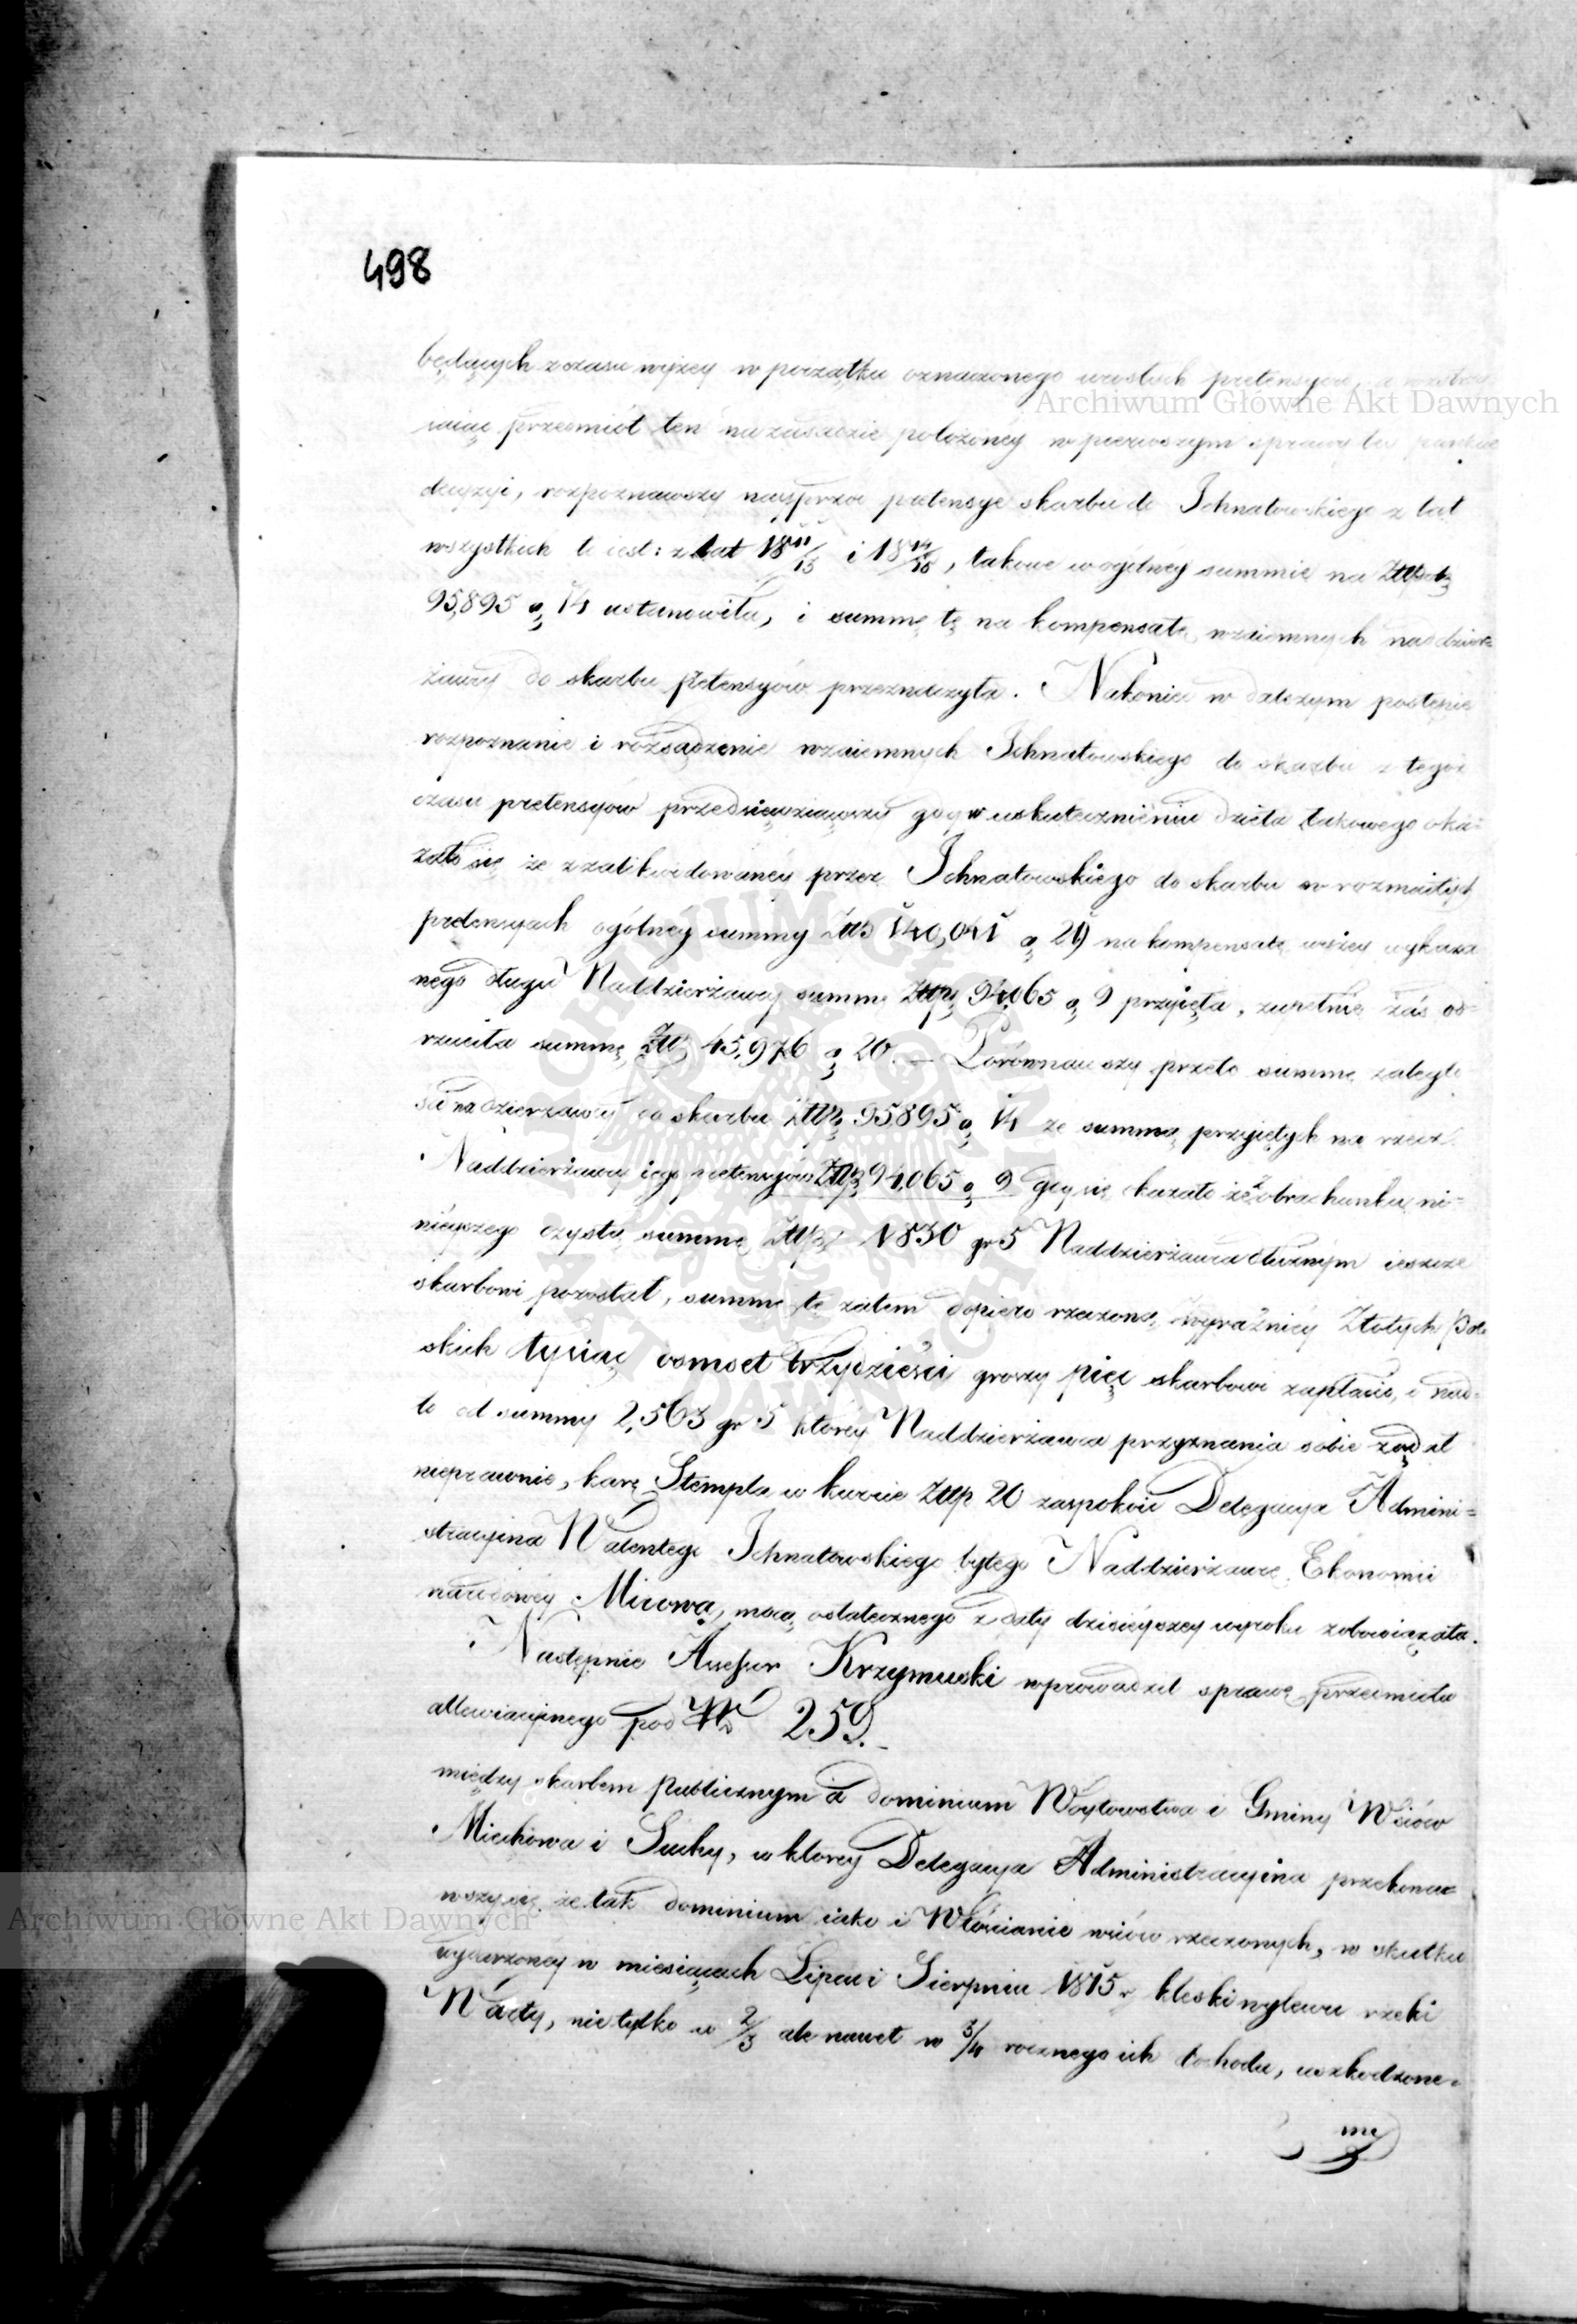 498
będących z czasu wyżey w początku oznaczonego urosłych pretensyow, a
iaiąc przedmiot ten na zasadzie położonéy w pierwszym sprawy tey punkcie
decyzyi, rozpoznawszy nayprzód pretensye skarbu do Ichnatowskiego z lat
wszystkich to iest: z lat 18 11/13 i 18, takowe w ogólney summie na Złłpol
95,895 g 14 ustanowiła, i summę tę na kompensatę wzaiemnych naddzier=
żawcy do skarbu pretensyów przeznaczyła. Nakoniec w dalszym postępie
rozpoznanie i rozsądzenie wzaiemnych Ichnatowskiego do skarbu z tegoż
czasu pretensyow przedsięwziąwszy gdy w uskutecznieniu dzieła takowego oka=
zało się że z zalikwidowanéy przez Ichnatowskiego do skarbu w rozmaitych
pretensyach ogólnéy summy Złłp 140,041 g 29 na kompensatę wyżey wykaza
nego długu Naddzierżawcy summę Złłp 94,065 g 9 przyięła, zupełnie zaś od=
rzuciła summę Złłp 45,976 g 20. — Porównawszy przeto summę zaległo
ści naddzierżawcy do skarbu Złłp 95,895 g 14 ze summą przyiętych na rzecz
Naddzierżawcy iego pretensyów Złłp 94,065 g 9 gdy się okazało że z obrachunku ni=
nieyszego czystą summę Złłp 1830 gr 5 Naddzierżawca dłużnym ieszcze
skarbowi pozostał, summę tę zatem dopiero rzeczoną, wyraźniey Złotych Pol
skich tysiąc osmset trzydzieści groszy pięć skarbowi zapłacić, i nad=
to od summy 2,563 gr 5 któréy Naddzierżawca przyznania sobie żądał
nieprawnie, karę Stempla w kwocie Złłp 20 zaspokoić Delegacya Admini=
stracyina Walentego Ichnatowskiego byłego Naddzierżawcę Ekonomii
narodowey Micowa, mocą ostatecznego z daty dzisiéyszey wyroku zobowiązała.
Następnie Assessor Krzymuski wprowadził sprawę przedmiotu
allewiacyinego pod No 259.
między skarbem publicznym a dominium Woytowstwa i Gminy Wsiów
Miechowa i Suchy, w ktorey Delegacya Administracyina przekona=
wszy się że tak dominium iako i Włościanie wsiów rzeczonych, w skutku
wydarzoney w miesiącach Lipcu i Sierpniu 1815 r. klęski wylewu rzeki
nie tylko w 2/3 ale nawet w 3/4 rocznego ich dochodu, uszkodzone=
mi